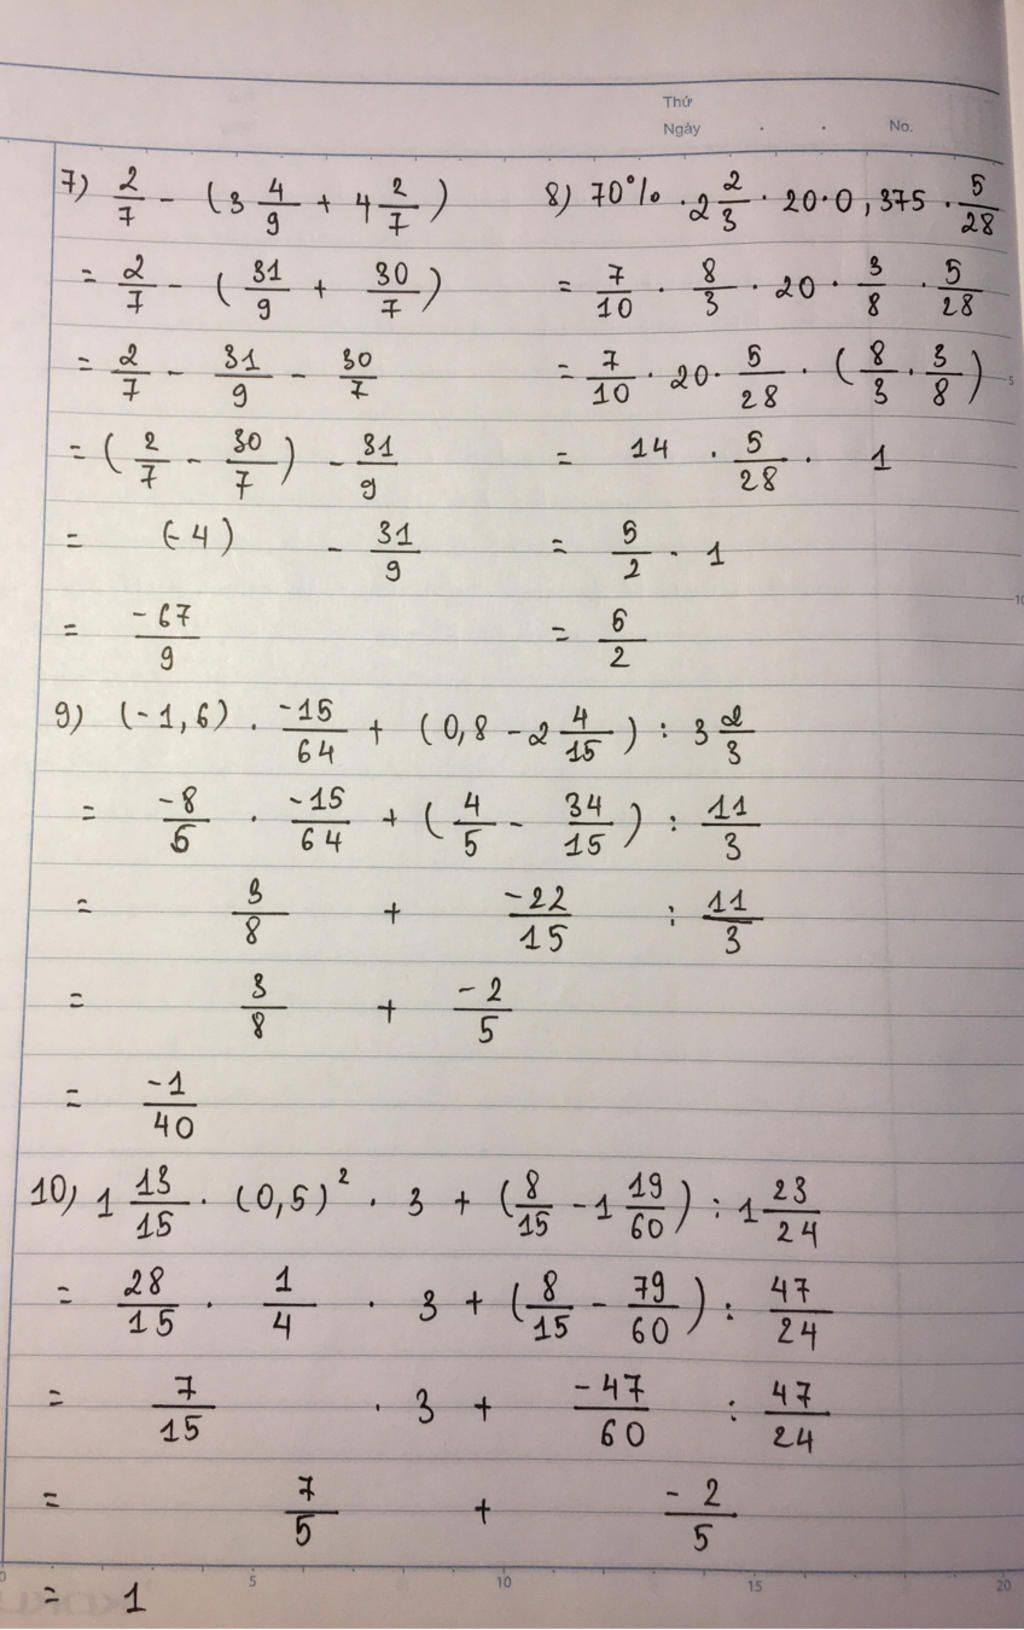 Thứ
Ngày . . No.
7) 2/7 - (3 4/9 + 4 2/7)
= 2/7 - (31/9 + 30/7)
= 2/7 - 31/9 - 30/7
= (2/7 - 30/7) - 31/9
= (-4) - 31/9
= -67/9
8) 70% . 2 2/3 . 20 . 0,375 . 5/28
= 7/10 . 8/3 . 20 . 3/8 . 5/28
= 7/10 . 20 . 5/28 . (8/3 . 3/8)
= 14 . 5/28 . 1
= 5/2 . 1
= 5/2
9) (-1,6) . -15/64 + (0,8 - 2 4/15) : 3 2/3
= -8/5 . -15/64 + (4/5 - 34/15) : 11/3
= 3/8 + -22/15 : 11/3
= 3/8 + -2/5
= -1/40
10) 1 13/15 . (0,5)² . 3 + (8/15 - 1 19/60) : 1 23/24
= 28/15 . 1/4 . 3 + (8/15 - 79/60) : 47/24
= 7/15 . 3 + -47/60 : 47/24
= 7/5 + -2/5
= 1
5
10
0 5 10 15 20